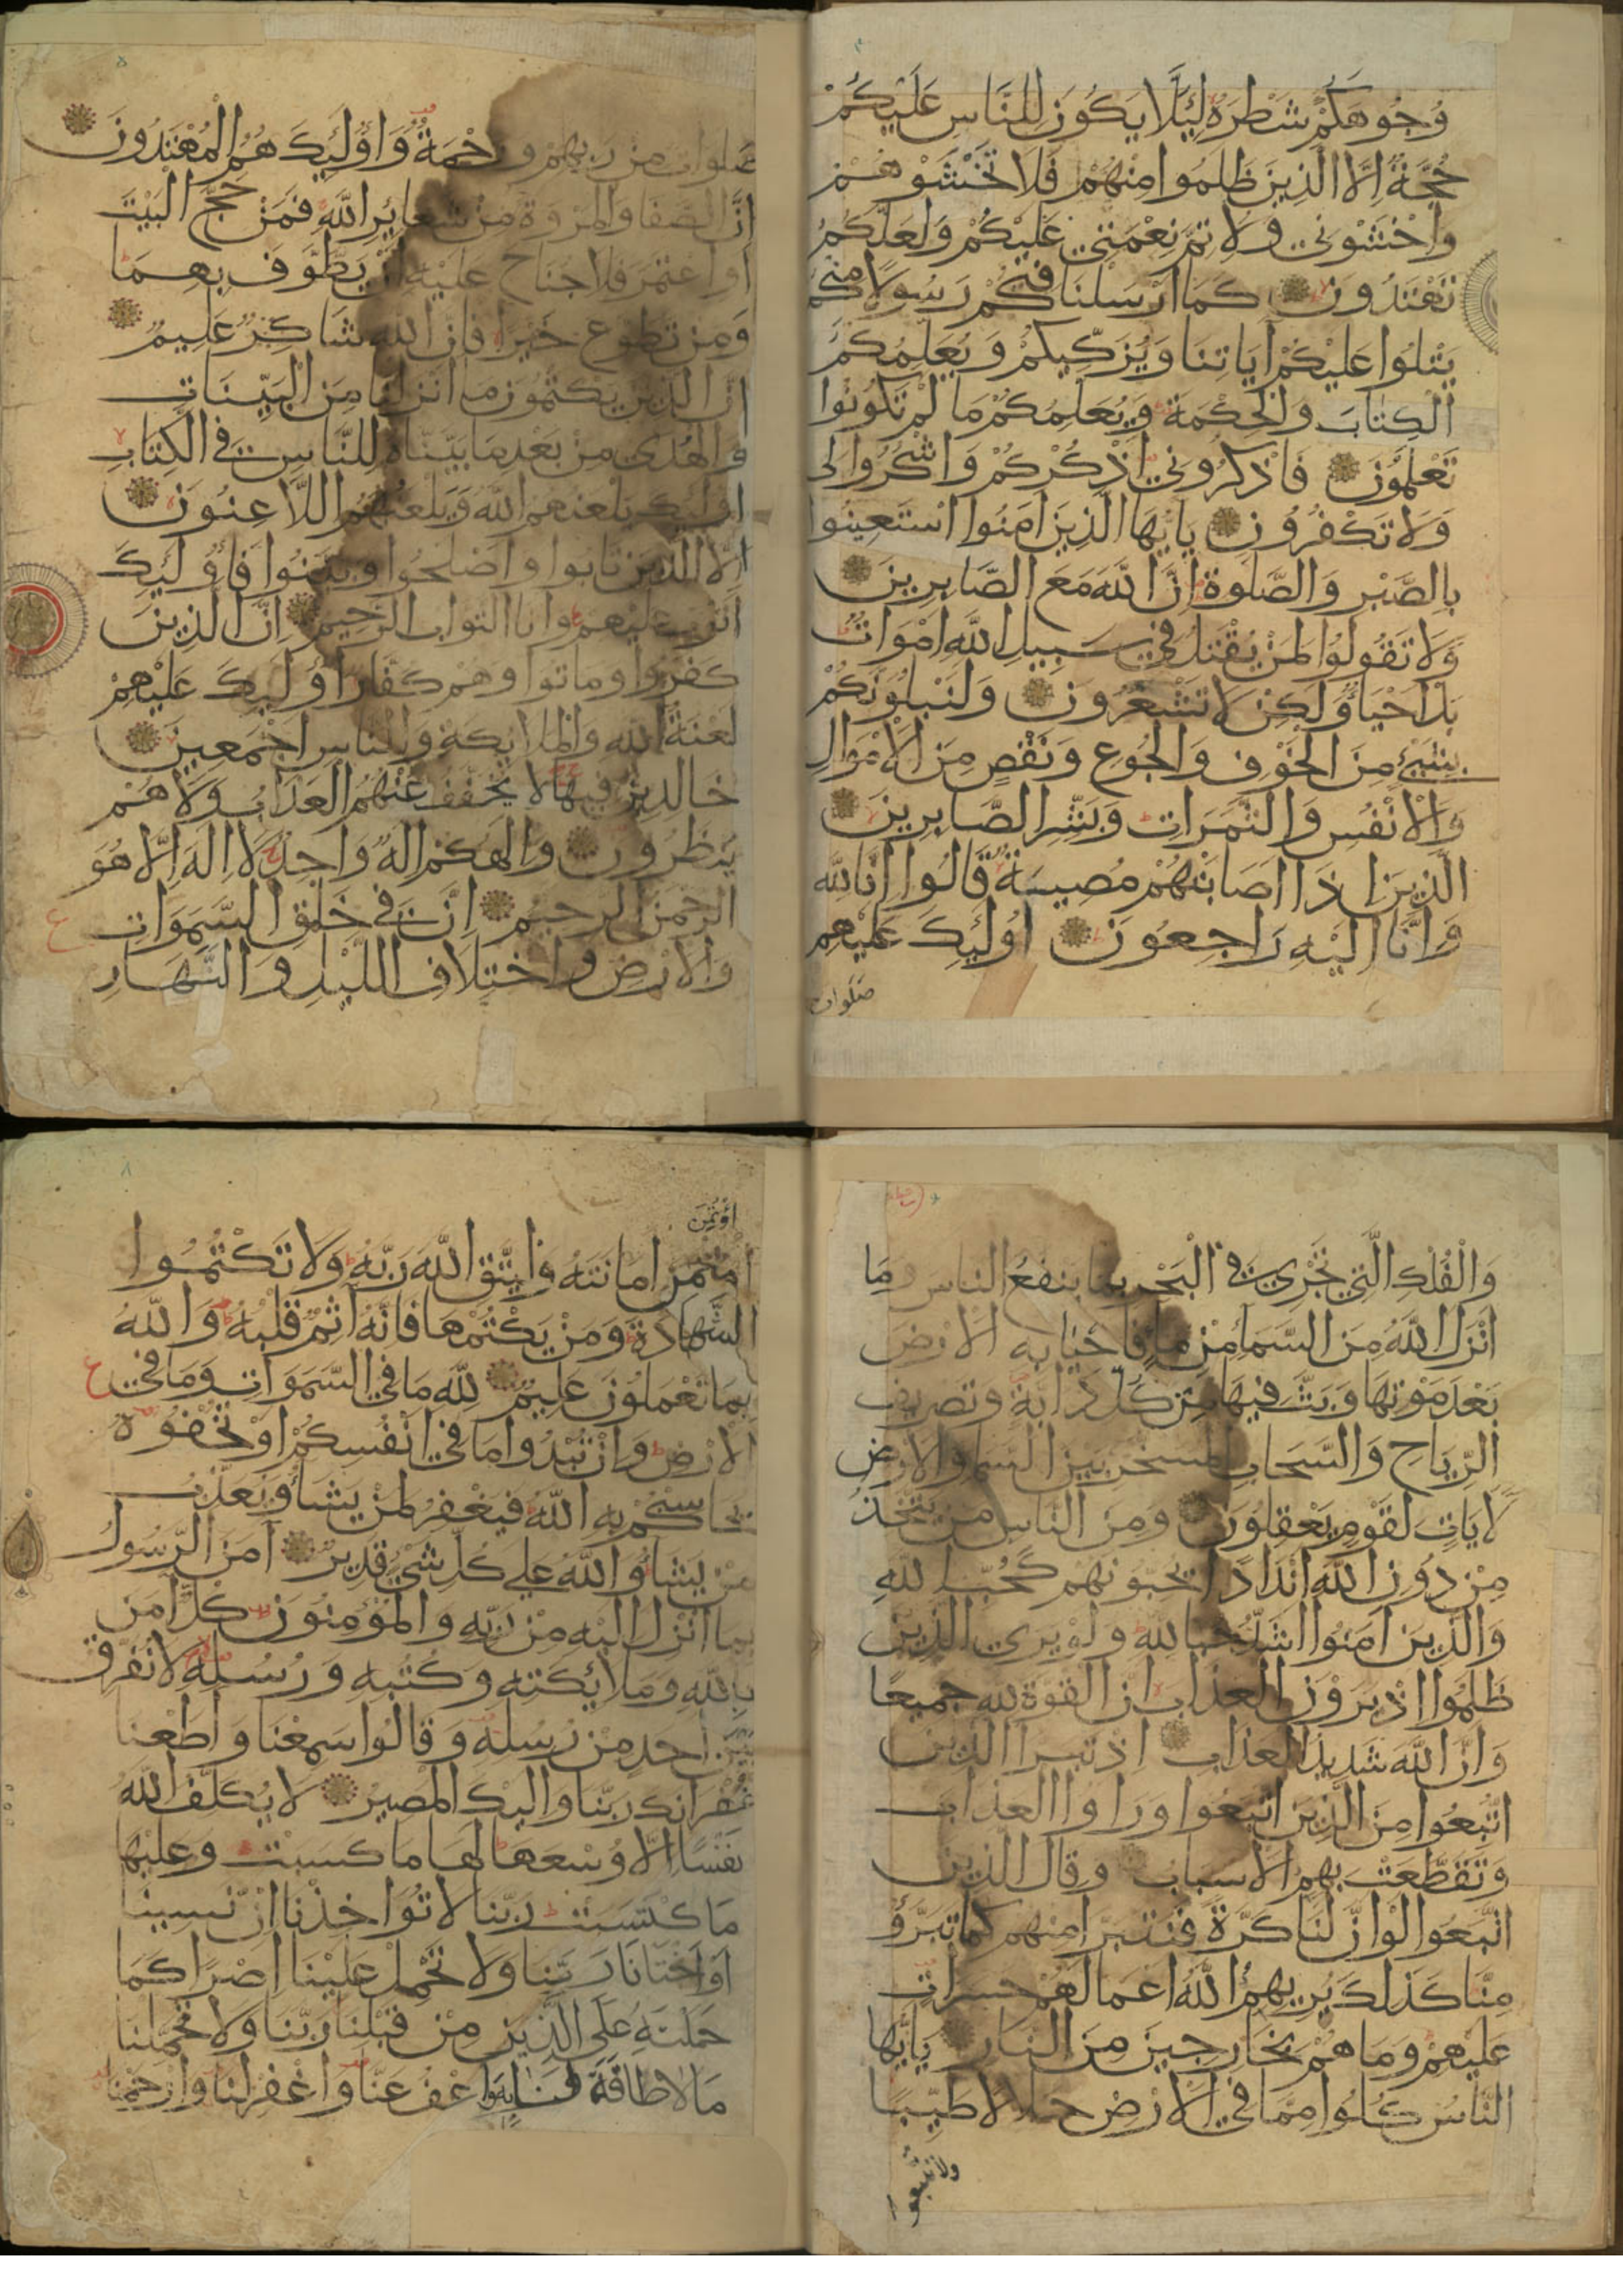 وُجُوهَكُمْ شَطْرَهُ لِئَلَّا يَكُونَ لِلنَّاسِ عَلَيْكُمْ
حُجَّةٌ اِلَّا الَّذِينَ ظَلَمُوا مِنْهُمْ فَلَا تَخْشَوْهُمْ
وَاخْشَوْنِي وَلِاُتِمَّ نِعْمَتِي عَلَيْكُمْ وَلَعَلَّكُمْ
تَهْتَدُونَ كَمَا اَرْسَلْنَا فِيكُمْ رَسُولًا مِنْكُمْ
يَتْلُوا عَلَيْكُمْ آيَاتِنَا وَيُزَكِّيكُمْ وَيُعَلِّمُكُمُ
الْكِتَابَ وَالْحِكْمَةَ وَيُعَلِّمُكُمْ مَا لَمْ تَكُونُوا
تَعْلَمُونَ فَاذْكُرُونِي اَذْكُرْكُمْ وَاشْكُرُوا لِي
وَلَا تَكْفُرُونِ يَايُّهَا الَّذِينَ آمَنُوا اسْتَعِينُوا
بِالصَّبْرِ وَالصَّلٰوةِ اِنَّ اللَّهَ مَعَ الصَّابِرِينَ
وَلَا تَقُولُوا لِمَنْ يُقْتَلُ فِي سَبِيلِ اللَّهِ اَمْوَاتٌ
بَلْ اَحْيَاءٌ وَلٰكِنْ لَا تَشْعُرُونَ وَلَنَبْلُوَنَّكُمْ
بِشَيْءٍ مِنَ الْخَوْفِ وَالْجُوعِ وَنَقْصٍ مِنَ الْاَمْوَالِ
وَالْاَنْفُسِ وَالثَّمَرَاتِ وَبَشِّرِ الصَّابِرِينَ
الَّذِينَ اِذَا اَصَابَتْهُمْ مُصِيبَةٌ قَالُوا اِنَّا لِلَّهِ
وَاِنَّا اِلَيْهِ رَاجِعُونَ اُولٰئِكَ عَلَيْهِمْ
صلوات
صلوات من ربهم ورَحْمَةٌ وَاُولٰئِكَ هُمُ الْمُهْتَدُونَ
اِنَّ الصَّفَا وَالْمَرْوَةَ مِنْ شَعَائِرِ اللَّهِ فَمَنْ حَجَّ الْبَيْتَ
اَوِ اعْتَمَرَ فَلَا جُنَاحَ عَلَيْهِ اَنْ يَطَّوَّفَ بِهِمَا
وَمَنْ تَطَوَّعَ خَيْرًا فَاِنَّ اللَّهَ شَاكِرٌ عَلِيمٌ
اِنَّ الَّذِينَ يَكْتُمُونَ مَا اَنْزَلْنَا مِنَ الْبَيِّنَاتِ
وَالْهُدٰى مِنْ بَعْدِ مَا بَيَّنَّاهُ لِلنَّاسِ فِي الْكِتَابِ
اولئك يلعنهم اللَّهُ وَيَلْعَنُهُمُ اللَّاعِنُونَ
اِلَّا الَّذِينَ تَابُوا وَاَصْلَحُوا وَبَيَّنُوا فَاُولٰئِكَ
اَتُوبُ عَلَيْهِمْ وَاَنَا التَّوَّابُ الرَّحِيمُ اِنَّ الَّذِينَ
كَفَرُوا وَمَاتُوا وَهُمْ كُفَّارٌ اُولٰئِكَ عَلَيْهِمْ
لَعْنَةُ اللَّهِ وَالْمَلَائِكَةِ وَالنَّاسِ اَجْمَعِينَ
خَالِدِينَ فِيهَا لَا يُخَفَّفُ عَنْهُمُ الْعَذَابُ وَلَا هُمْ
يُنْظَرُونَ وَاِلٰهُكُمْ اِلٰهٌ وَاحِدٌ لَا اِلٰهَ اِلَّا هُوَ
الرَّحْمٰنُ الرَّحِيمُ اِنَّ فِي خَلْقِ السَّمٰوَاتِ
وَالْاَرْضِ وَاخْتِلَافِ اللَّيْلِ وَالنَّهَارِ
وَالْفُلْكِ الَّتِي تَجْرِي فِي الْبَحْرِ بِمَا يَنْفَعُ النَّاسَ وَمَا
اَنْزَلَ اللَّهُ مِنَ السَّمَاءِ مِنْ مَاءٍ فَاَحْيَا بِهِ الْاَرْضَ
بَعْدَ مَوْتِهَا وَبَثَّ فِيهَا مِنْ كُلِّ دَابَّةٍ وَتَصْرِيفِ
الرِّيَاحِ وَالسَّحَابِ الْمُسَخَّرِ بَيْنَ السَّمَاءِ وَالْاَرْضِ
لَآيَاتٍ لِقَوْمٍ يَعْقِلُونَ وَمِنَ النَّاسِ مَنْ يَتَّخِذُ
مِنْ دُونِ اللَّهِ اَنْدَادًا يُحِبُّونَهُمْ كَحُبِّ اللَّهِ
وَالَّذِينَ آمَنُوا اَشَدُّ حُبًّا لِلَّهِ وَلَوْ يَرَى الَّذِينَ
ظَلَمُوا اِذْ يَرَوْنَ الْعَذَابَ اَنَّ الْقُوَّةَ لِلَّهِ جَمِيعًا
وَاَنَّ اللَّهَ شَدِيدُ الْعَذَابِ اِذْ تَبَرَّاَ الَّذِينَ
اتُّبِعُوا مِنَ الَّذِينَ اتَّبَعُوا وَرَاَوُا الْعَذَابَ
وَتَقَطَّعَتْ بِهِمُ الْاَسْبَابُ وَقَالَ الَّذِينَ
اتَّبَعُوا لَوْ اَنَّ لَنَا كَرَّةً فَنَتَبَرَّاَ مِنْهُمْ كَمَا تَبَرَّؤُ
مِنَّا كَذٰلِكَ يُرِيهِمُ اللَّهُ اَعْمَالَهُمْ حَسَرَاتٍ
عَلَيْهِمْ وَمَا هُمْ بِخَارِجِينَ مِنَ النَّارِ يَاَيُّهَا
النَّاسُ كُلُوا مِمَّا فِي الْاَرْضِ حَلَالًا طَيِّبًا
ولا تتبعوا
اؤْتُمِنَ
اؤتمن اَمَانَتَهُ وَلْيَتَّقِ اللَّهَ رَبَّهُ وَلَا تَكْتُمُوا
الشَّهَادَةَ وَمَنْ يَكْتُمْهَا فَاِنَّهُ آثِمٌ قَلْبُهُ وَاللَّهُ
بِمَا تَعْمَلُونَ عَلِيمٌ لِلَّهِ مَا فِي السَّمٰوَاتِ وَمَا فِي
الْاَرْضِ وَاِنْ تُبْدُوا مَا فِي اَنْفُسِكُمْ اَوْ تُخْفُوهُ
يُحَاسِبْكُمْ بِهِ اللَّهُ فَيَغْفِرُ لِمَنْ يَشَاءُ وَيُعَذِّبُ
مَنْ يَشَاءُ وَاللَّهُ عَلٰى كُلِّ شَيْءٍ قَدِيرٌ آمَنَ الرَّسُولُ
بِمَا اُنْزِلَ اِلَيْهِ مِنْ رَبِّهِ وَالْمُؤْمِنُونَ كُلٌّ آمَنَ
بِاللَّهِ وَمَلَائِكَتِهِ وَكُتُبِهِ وَرُسُلِهِ لَا نُفَرِّقُ
بَيْنَ اَحَدٍ مِنْ رُسُلِهِ وَقَالُوا سَمِعْنَا وَاَطَعْنَا
غُفْرَانَكَ رَبَّنَا وَاِلَيْكَ الْمَصِيرُ لَا يُكَلِّفُ اللَّهُ
نَفْسًا اِلَّا وُسْعَهَا لَهَا مَا كَسَبَتْ وَعَلَيْهَا
مَا اكْتَسَبَتْ رَبَّنَا لَا تُؤَاخِذْنَا اِنْ نَسِينَا
اَوْ اَخْطَانَا رَبَّنَا وَلَا تَحْمِلْ عَلَيْنَا اِصْرًا كَمَا
حَمَلْتَهُ عَلَى الَّذِينَ مِنْ قَبْلِنَا رَبَّنَا وَلَا تُحَمِّلْنَا
مَا لَا طَاقَةَ لَنَا بِهِ وَاعْفُ عَنَّا وَاغْفِرْ لَنَا وَارْحَمْنَا